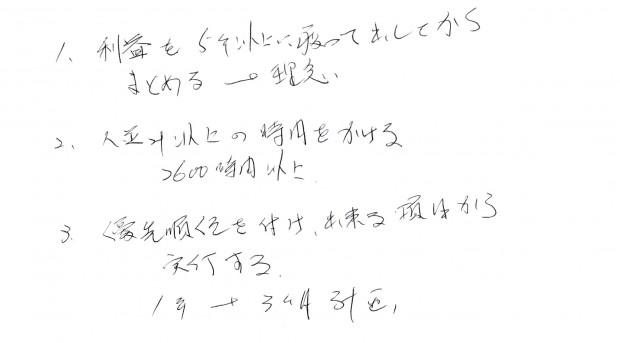 1. 利益を5年以上に渡って出してから
まとめる → 理念
2. 人並み以上の時間をかける
2600時間以上
3. 優先順位を付け、出来る項目から
実行する
1年 → 3ヶ月計画